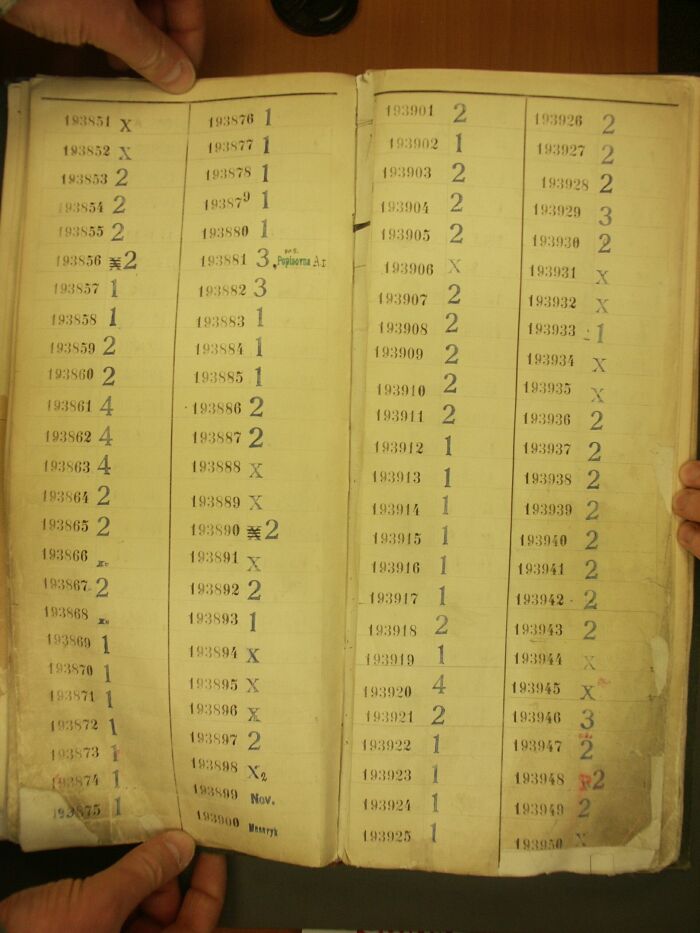 193851 X
193852 X
193853 2
193854 2
193855 2
193856 X 2
193857 1
193858 1
193859 2
193860 2
193861 4
193862 4
193863 4
193864 2
193865 2
193866
193867 2
193868
193869 1
193870 1
193871 1
193872 1
193873 1
193874 1
193875 1
193876 1
193877 1
193878 1
193879 1
193880 1
193881 3, Popisovna Ar
193882 3
193883 1
193884 1
193885 1
193886 2
193887 2
193888 X
193889 X
193890 X 2
193891 X
193892 2
193893 1
193894 X
193895 X
193896 X
193897 2
193898 X2
193899 Nov.
193900 Masaryk
193901 2
193902 1
193903 2
193904 2
193905 2
193906 X
193907 2
193908 2
193909 2
193910 2
193911 2
193912 1
193913 1
193914 1
193915 1
193916 1
193917 1
193918 2
193919 1
193920 4
193921 2
193922 1
193923 1
193924 1
193925 1
193926 2
193927 2
193928 2
193929 3
193930 2
193931 X
193932 X
193933 1
193934 X
193935 X
193936 2
193937 2
193938 2
193939 2
193940 2
193941 2
193942 2
193943 2
193944 X
193945 X
193946 3
193947 2
193948 2
193949 2
193950 X